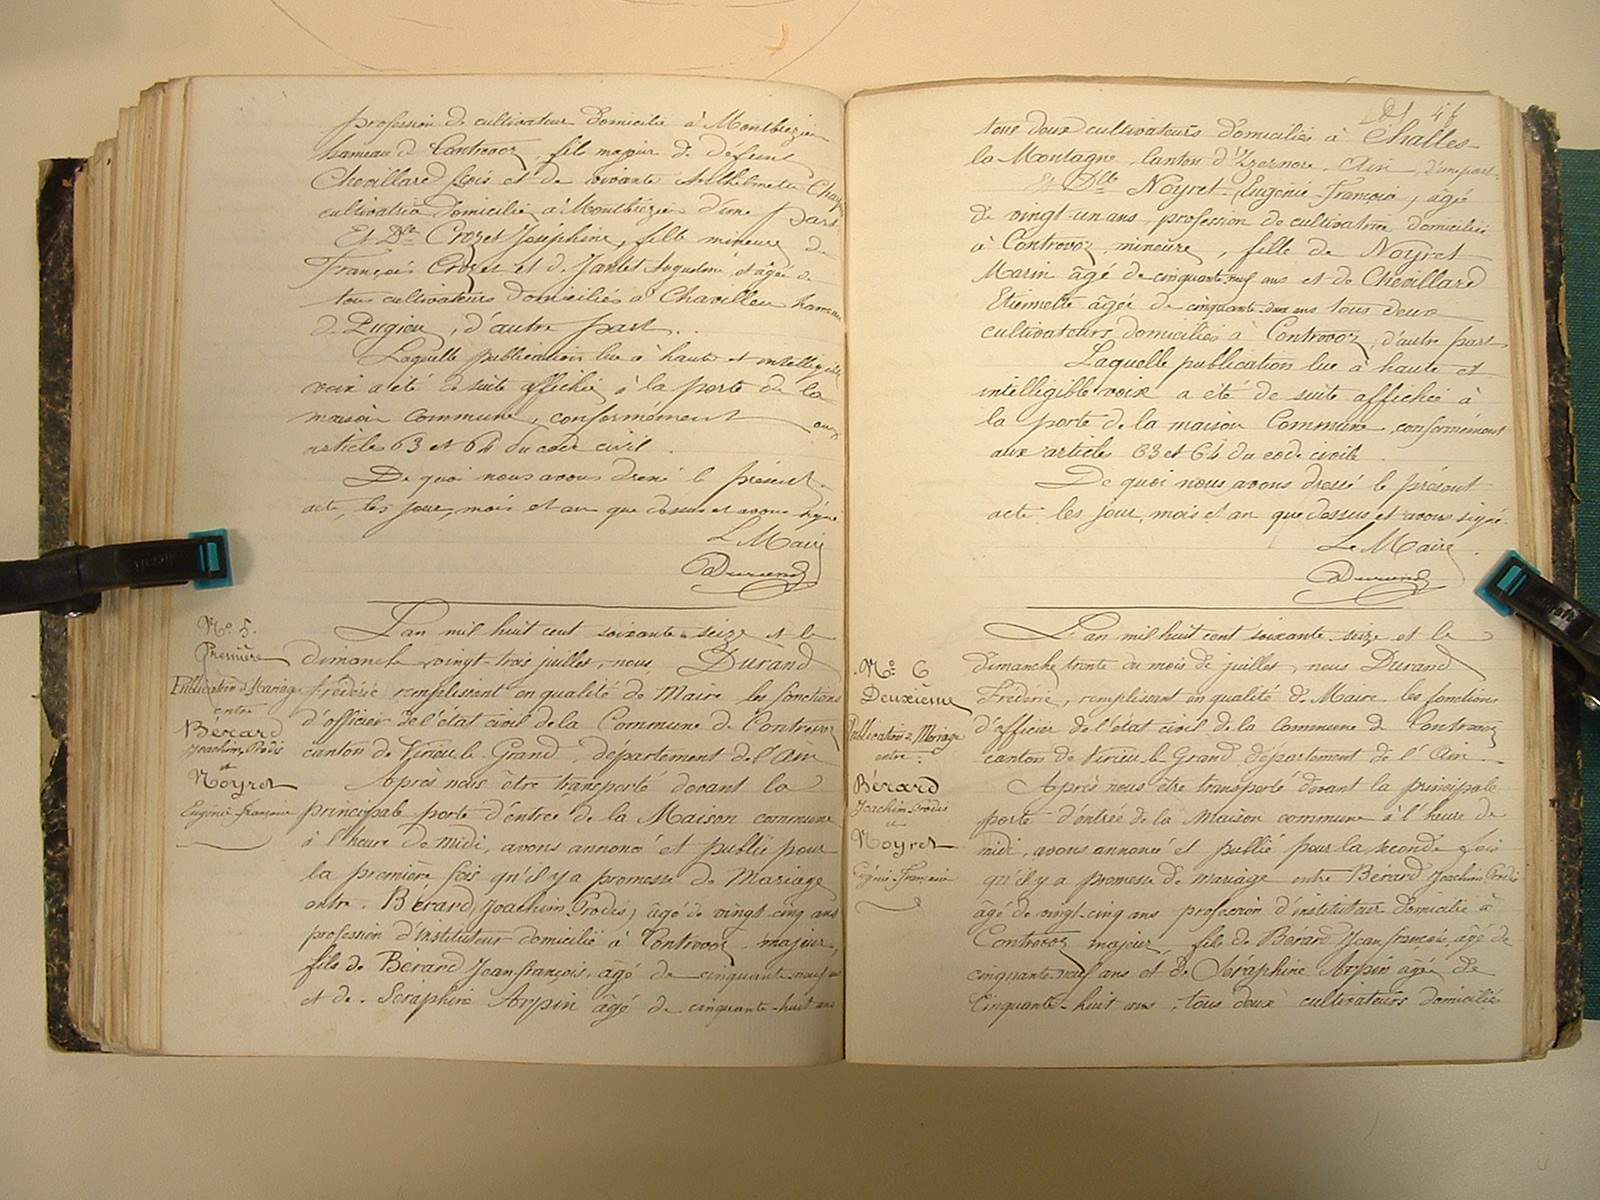 profession de cultivateur domicilié à Montbrezieu
hameau de Contrevoz, fils majeur de défunt
Chevillard et de vivante Anthelmette
cultivatrice domiciliée à Montbrezieu d'une part
Et Dlle Crozet Joséphine, fille mineure de
François Crozet et de Jantet Augustine et âgée de
tous cultivateurs domiciliés à Chavilleu hameau
de Pugieu, d'autre part.
Laquelle publication lue à haute et intelligible
voix a été de suite affichée à la porte de la
maison commune, conformément aux
articles 63 et 64 du code civil.
De quoi nous avons dressé le présent
acte, les jour, mois et an que dessus et avons signé
Le Maire
Durand
No. 5.
Première
Publication de Mariage
entre
Bérard
Joachim Prodis
et
Noyret
Eugénie Françoise
L'an mil huit cent soixante-seize et le
dimanche vingt-trois juillet, nous Durand
Frédéric remplissant en qualité de Maire les fonctions
d'officier de l'état civil de la Commune de Contrevoz
canton de Virieu le Grand, département de l'Ain
Après nous être transporté devant la
principale porte d'entrée de la Maison commune
à l'heure de midi, avons annoncé et publié pour
la première fois qu'il y a promesse de Mariage
entre Bérard, Joachim Prodis, âgé de vingt-cinq ans
profession d'instituteur domicilié à Contrevoz majeur,
fils de Bérard Jean françois, âgé de cinquante-neuf ans
et de Séraphine Arpin âgé de cinquante-huit ans
48
tous deux cultivateurs domiciliés à Challes
la Montagne, Canton d'Izernore, Ain, d'une part.
Et Dlle Noyret (Eugénie Françoise, âgé
de vingt-un ans, profession de cultivatrice domiciliée
à Contrevoz, mineure, fille de Noyret
Marin âgé de cinquante-neuf ans et de Chevillard
Etiennette âgée de cinquante-deux ans tous deux
cultivateurs domiciliés à Contrevoz, d'autre part
Laquelle publication lue à haute et
intelligible voix a été de suite affichée à
la porte de la maison Commune, conformément
aux articles 63 et 64 du code civile.
De quoi nous avons dressé le présent
acte les jour, mois et an que dessus et avons signé
Le Maire.
Durand
No. 6
Deuxième
Publication de Mariage
entre:
Bérard
Joachim Prodis
et
Noyret
Eugénie Françoise
L'an mil huit cent soixante-seize et le
dimanche trente du mois de juillet, nous Durand
Frédéric, remplissant en qualité de Maire les fonctions
d'officier de l'état civil de la Commune de Contrevoz
canton de Virieu le Grand, département de l'Ain
Après nous être transporté devant la principale
porte d'entrée de la Maison commune à l'heure de
midi, avons annoncé et publié pour la seconde fois
qu'il y a promesse de mariage entre Bérard Joachim Prodis
âgé de vingt-cinq ans profession d'instituteur domicilié à
Contrevoz majeur, fils de Bérard Jean françois, âgé de
cinquante-neuf ans et de Séraphine Arpin âgée de
Cinquante-huit ans, tous deux cultivateurs domiciliés